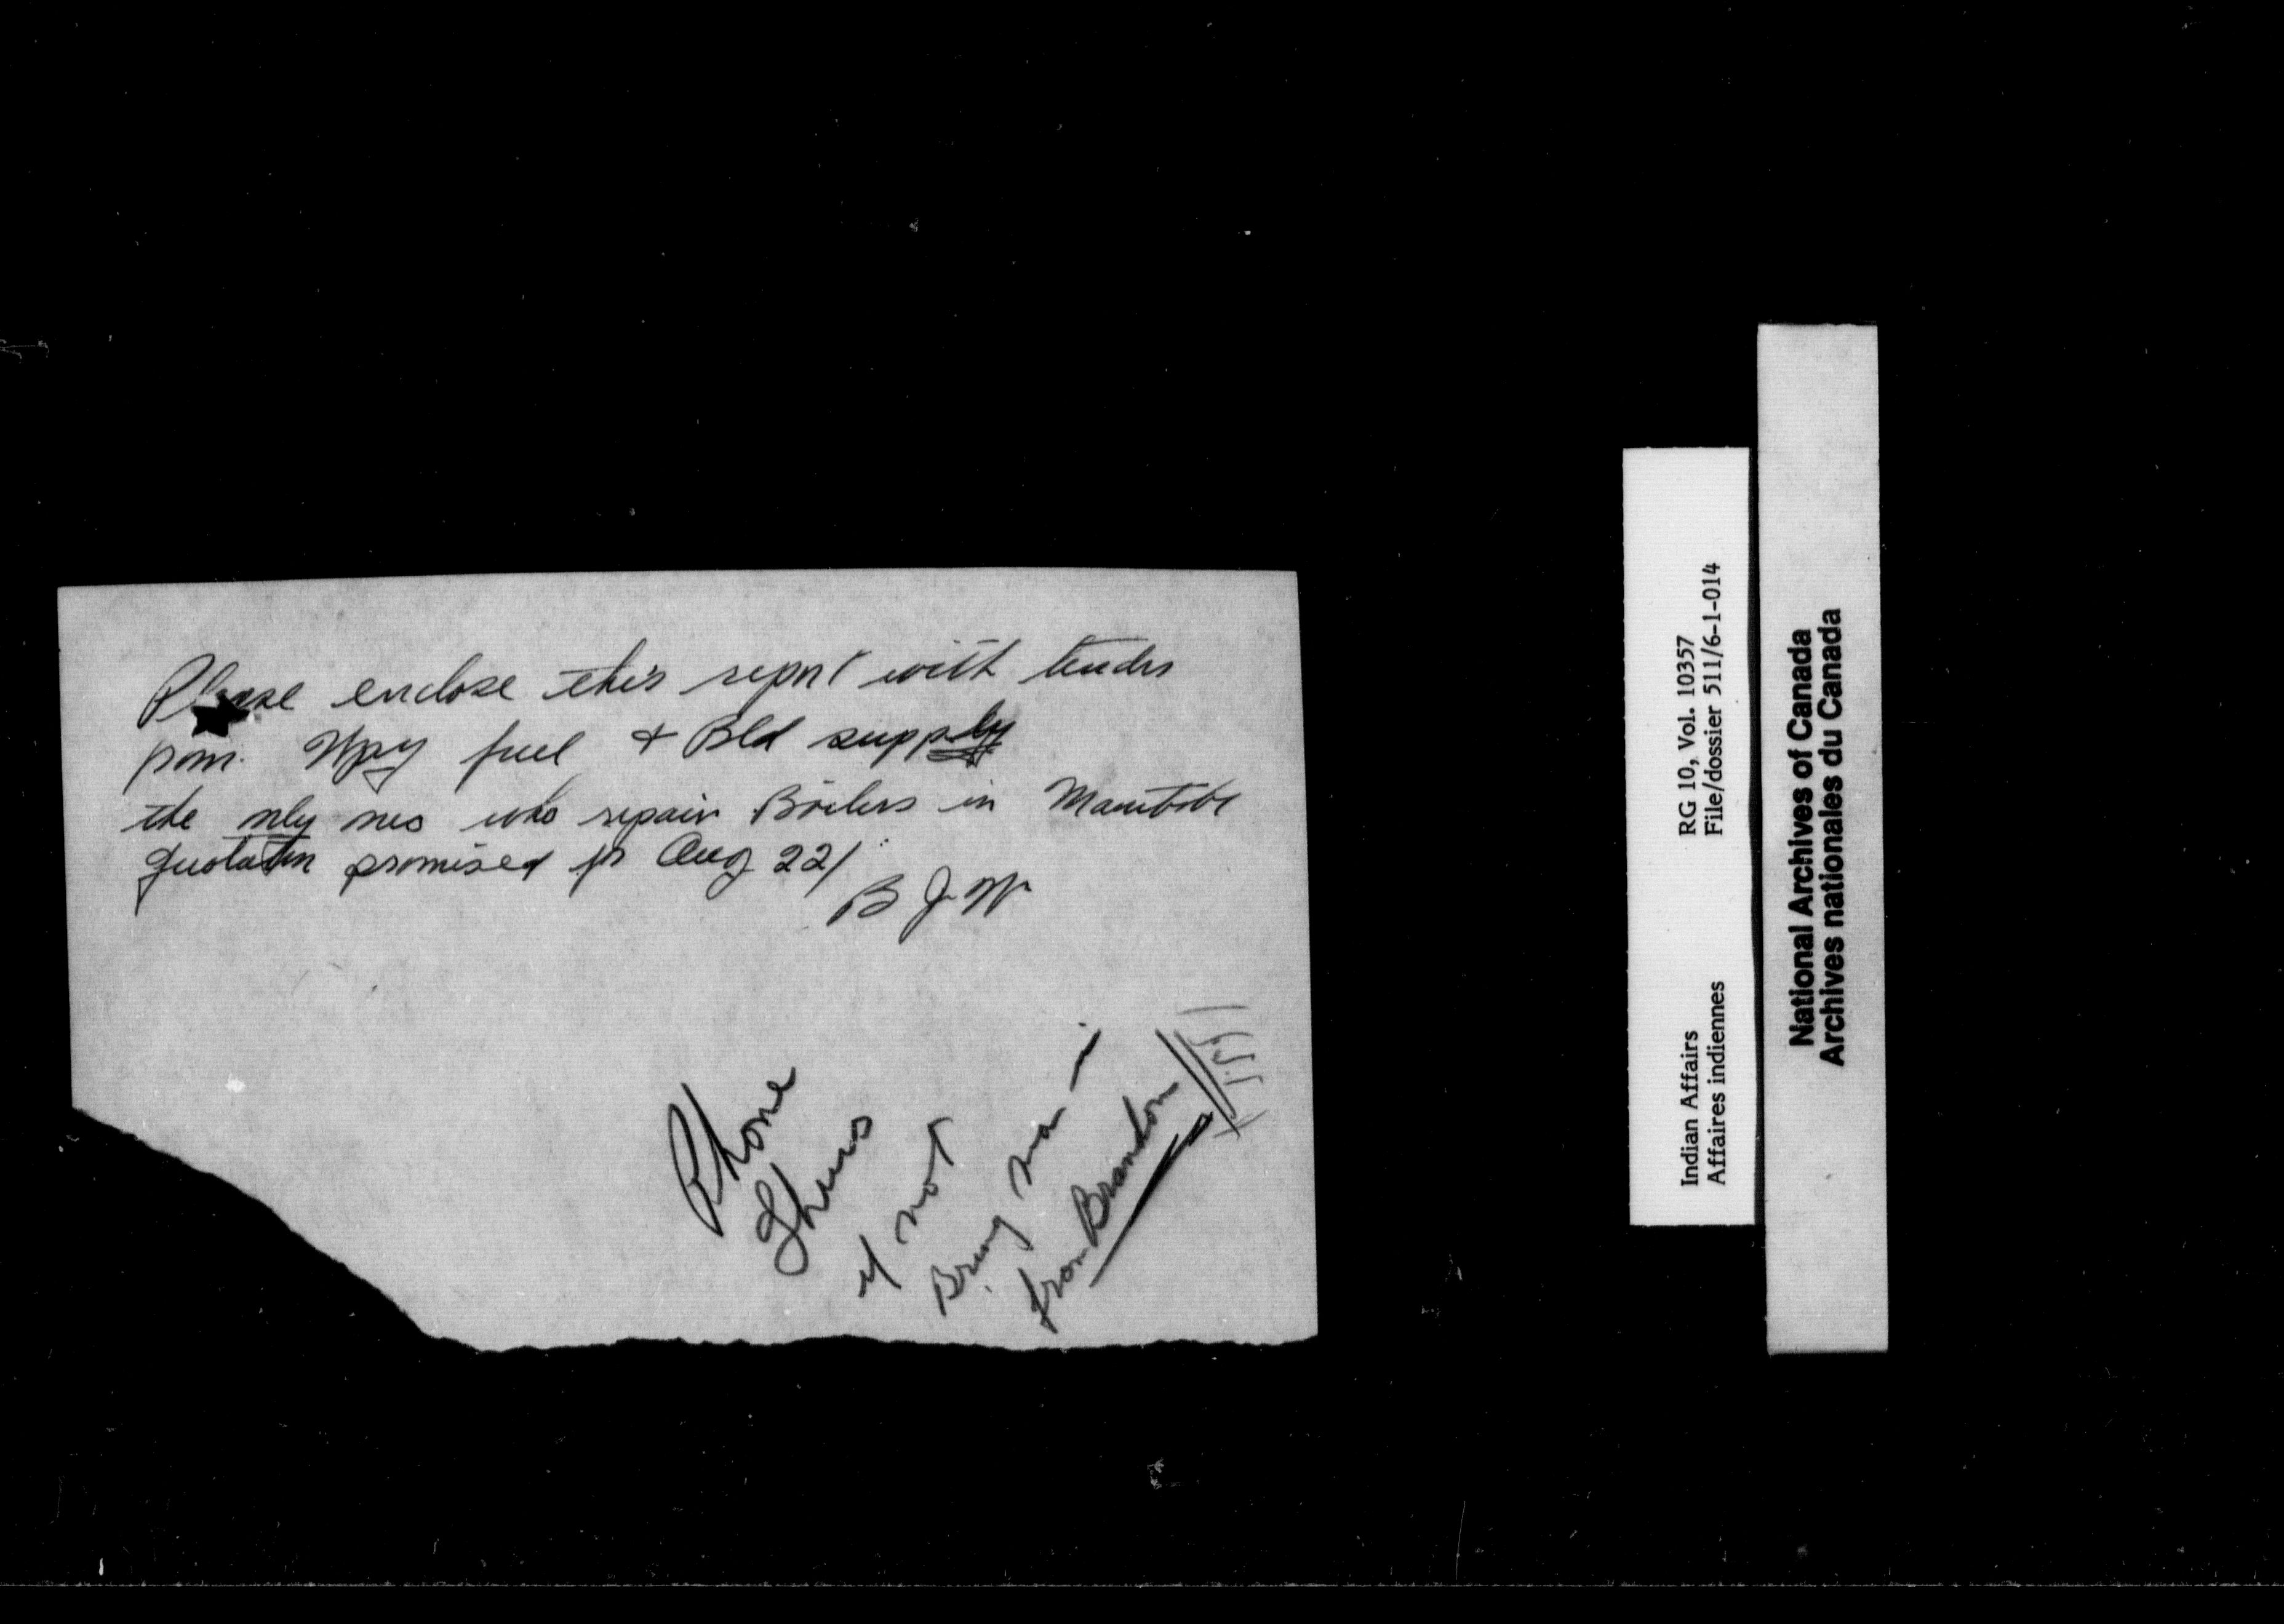 Please enclose this report with tenders
from Wpg fuel & Bld supply
the only ones who repair Boilers in Manitoba
quotation promised for Aug 22/
B J W
Phone
if not
Bring man in
from Brandon
Indian Affairs RG 10, Vol. 10357
Affaires indiennes File/dossier 511/6-1-014
National Archives of Canada
Archives nationales du Canada